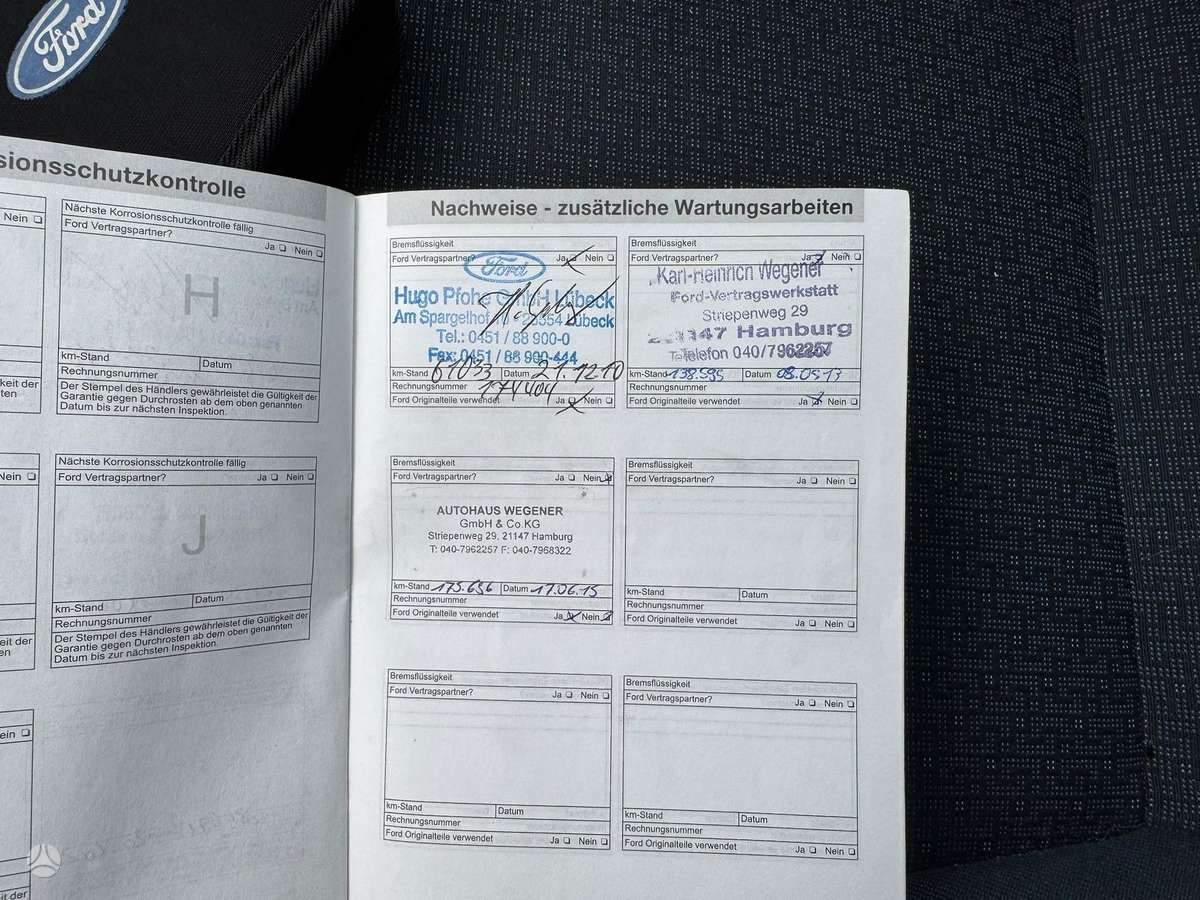 Ford
sionsschutzkontrolle
Nein
Nächste Korrosionsschutzkontrolle fällig
Ford Vertragspartner?
Ja Nein
H
km-Stand Datum
Rechnungsnummer
Der Stempel des Händlers gewährleistet die Gültigkeit der
Garantie gegen Durchrosten ab dem oben genannten
Datum bis zur nächsten Inspektion.
keit der
ten
Nein
Nächste Korrosionsschutzkontrolle fällig
Ford Vertragspartner? Ja Nein
J
km-Stand Datum
Rechnungsnummer
Der Stempel des Händlers gewährleistet die Gültigkeit der
Garantie gegen Durchrosten ab dem oben genannten
Datum bis zur nächsten Inspektion.
eit der
en
ein
it der
Nachweise - zusätzliche Wartungsarbeiten
Bremsflüssigkeit
Ford Vertragspartner? Ja Nein
Ford
Hugo Pfohe GmbH Lübeck
Am Spargelhof 23554 Lübeck
Tel.: 0451 / 88 900-0
Fax: 0451 / 88 900-444
km-Stand 61033 Datum 21.12.10
Rechnungsnummer 174404
Ford Originalteile verwendet Ja Nein
Bremsflüssigkeit
Ford Vertragspartner? Ja Nein
Karl-Heinrich Wegener
Ford-Vertragswerkstatt
Striepenweg 29
21147 Hamburg
Telefon 040/7962257
km-Stand 138.595 Datum 08.05.13
Rechnungsnummer
Ford Originalteile verwendet Ja Nein
Bremsflüssigkeit
Ford Vertragspartner? Ja Nein
AUTOHAUS WEGENER
GmbH & Co.KG
Striepenweg 29. 21147 Hamburg
T: 040-7962257 F: 040-7968322
km-Stand 175.656 Datum 17.06.15
Rechnungsnummer
Ford Originalteile verwendet Ja Nein
Bremsflüssigkeit
Ford Vertragspartner? Ja Nein
km-Stand Datum
Rechnungsnummer
Ford Originalteile verwendet Ja Nein
Bremsflüssigkeit
Ford Vertragspartner? Ja Nein
km-Stand Datum
Rechnungsnummer
Ford Originalteile verwendet Ja Nein
Bremsflüssigkeit
Ford Vertragspartner? Ja Nein
km-Stand Datum
Rechnungsnummer
Ford Originalteile verwendet Ja Nein